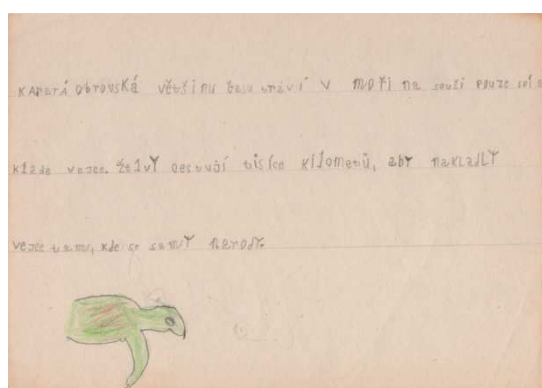 KAРATÁ obrovská většinu času tráví v moři na souši pouze spí a
klade vejce. želvy cestují tisíce kilometrů, aby nakladly
vejce tam, kde se samy narodí.